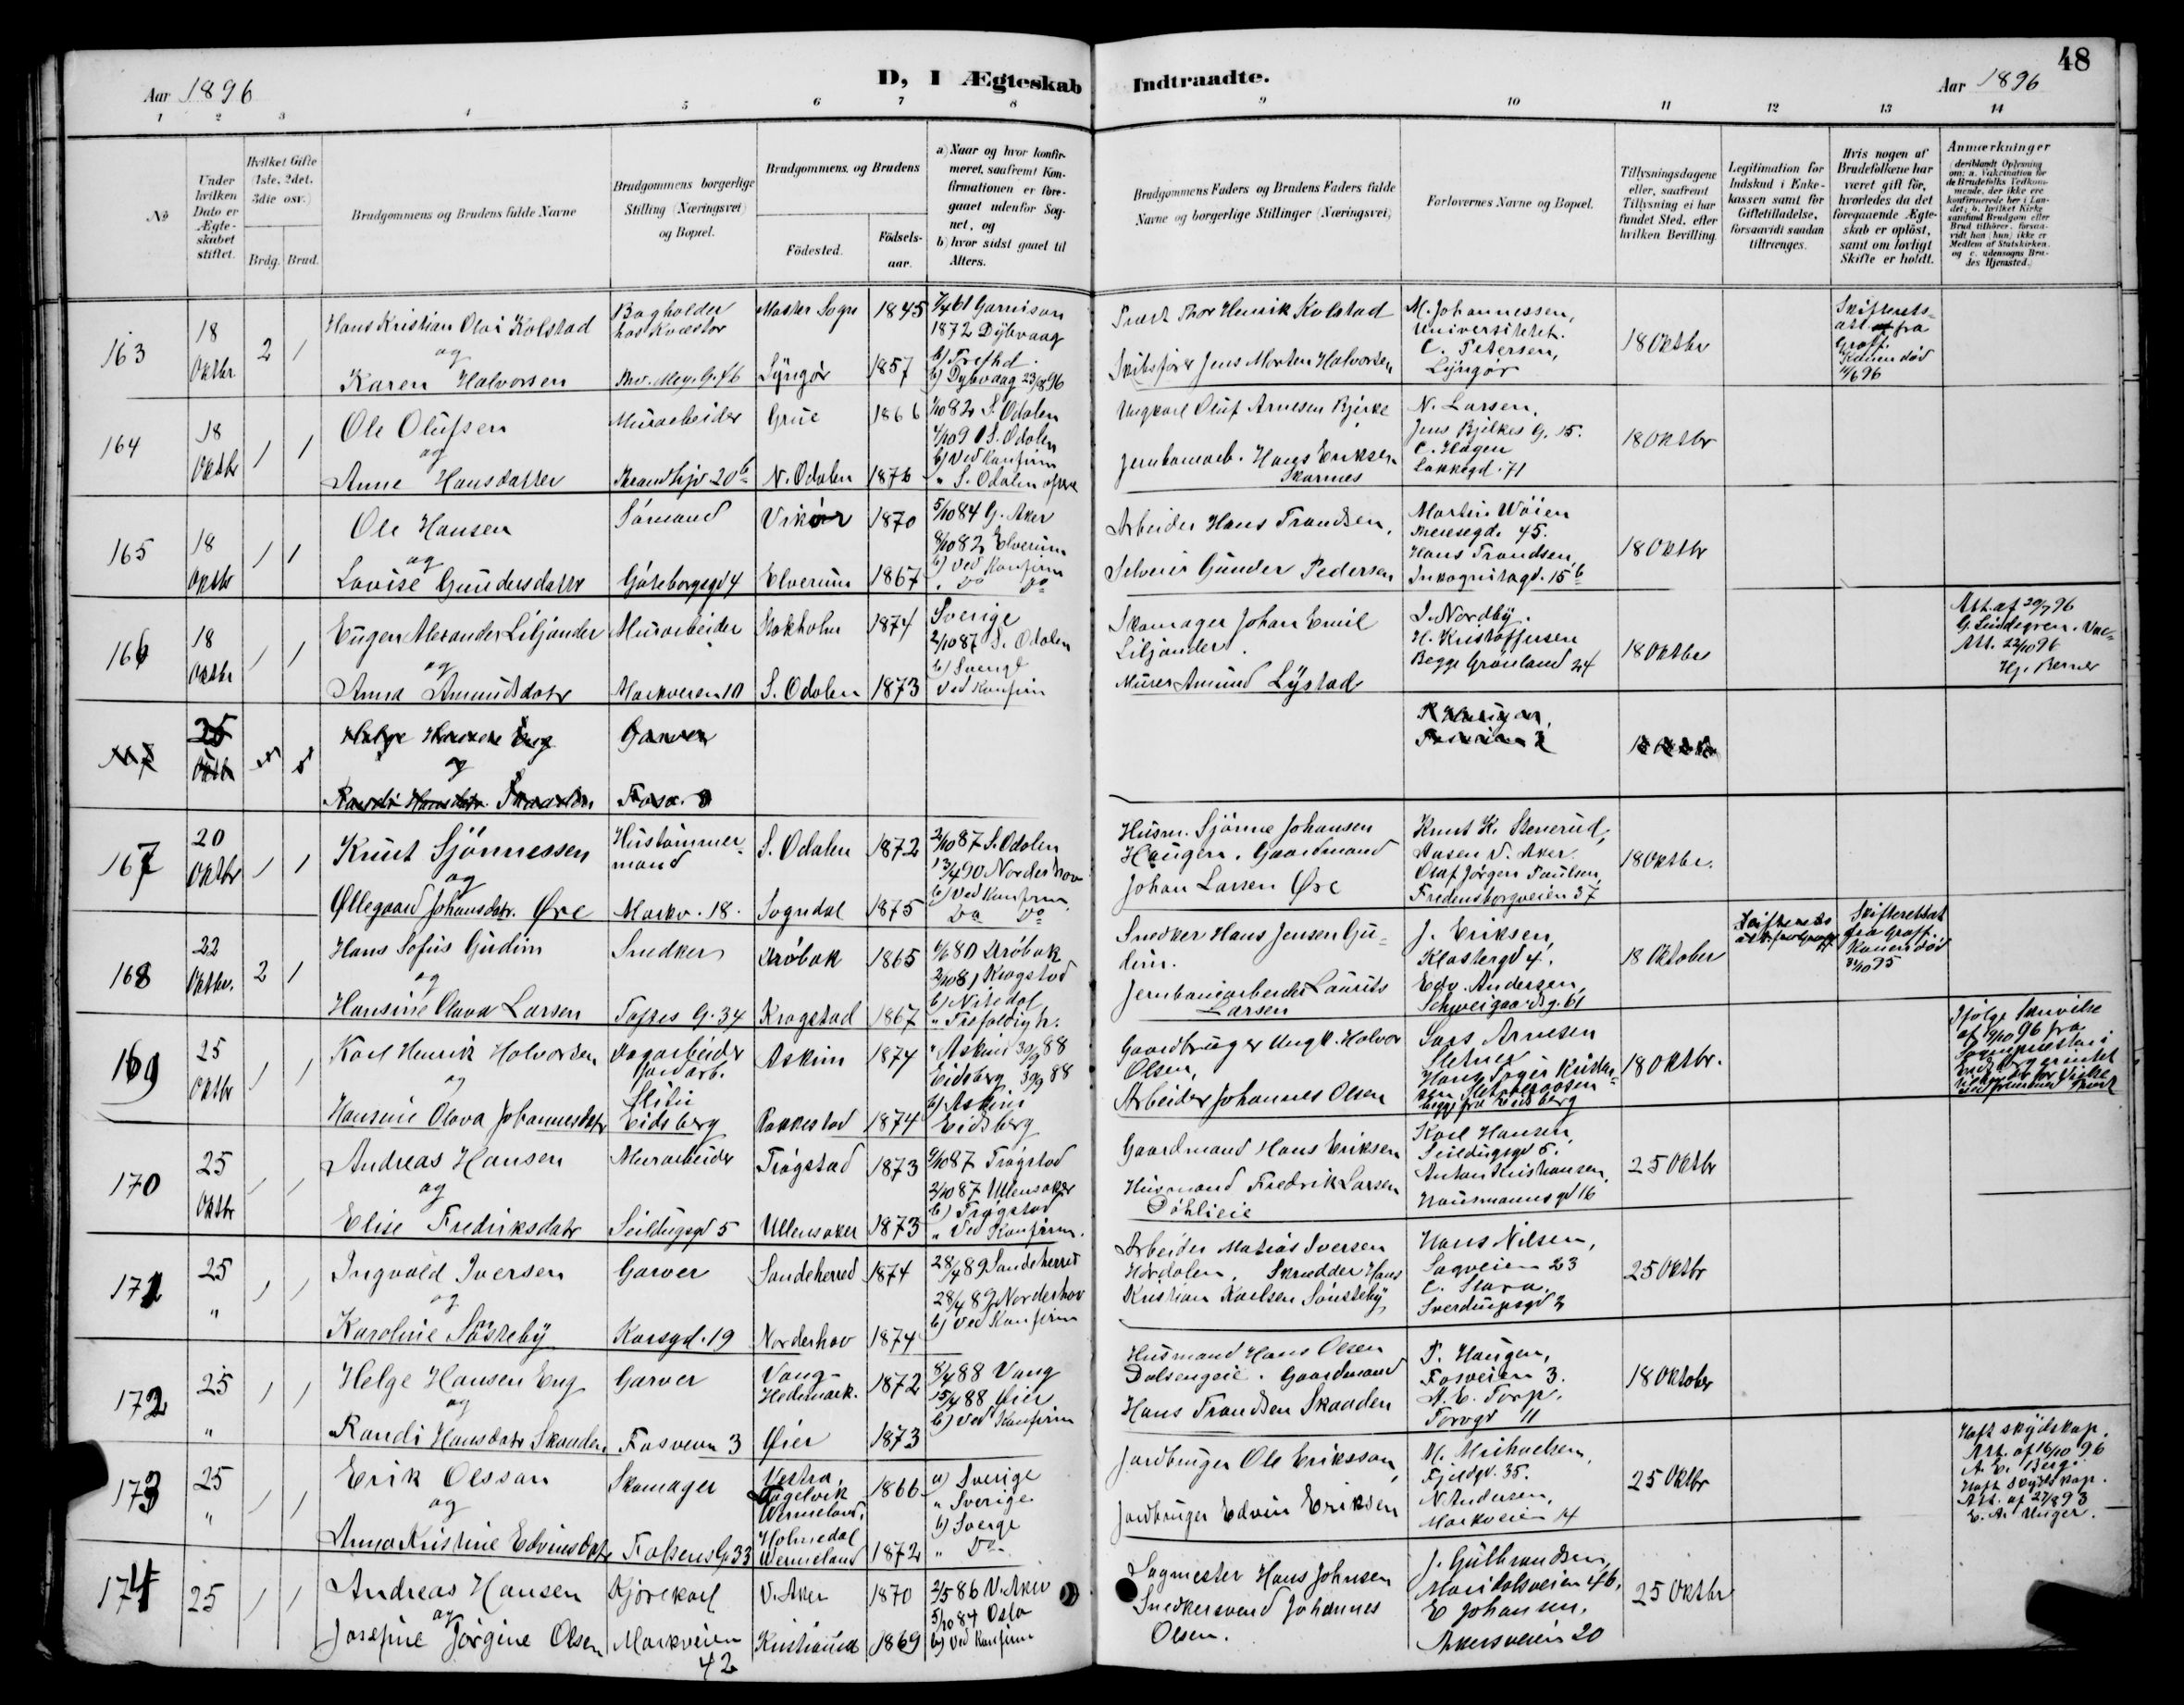 48
D, I Ægteskab Indtraadte.
Aar 1896
Aar 1896
1 2 3 4 5 6 7 8 9 10 11 12 13 14
№
Under hvilken Dato er Ægte-skabet stiftet.
Hvilket Gifte (1ste, 2det, 3die osv.)
Brdg. Brud.
Brudgommens og Brudens fulde Navne
Brudgommens borgerlige Stilling (Næringsvei) og Bopæl.
Brudgommens og Brudens
Födested.
Födsels-aar.
a) Naar og hvor konfir-meret, saafremt Kon-firmationen er fore-gaaet udenfor Sog-net, og
b) hvor sidst gaaet til Alters.
Brudgommens Faders og Brudens Faders fulde Navne og borgerlige Stillinger (Næringsvei)
Forlovernes Navne og Bopæl.
Tillysningsdagene eller, saafremt Tillysning ei har fundet Sted, efter hvilken Bevilling.
Legitimation for Indskud i Enke-kassen samt for Giftetilladelse, forsaavidt saadan tiltrænges.
Hvis nogen af Brudefolkene har været gift för, hvorledes da det foregaaende Ægte-skab er oplöst, samt om lovligt Skifte er holdt.
Anmærkninger (deriblandt Oplysning om: a. Vaccination for de Brudefolks Vedkom-mende, der ikke ere konfirmerede her i Lan-det; b. hvilket Kirke-samfund Brudgom eller Brud tilhörer, forsaa-vidt han (hun) ikke er Medlem af Statskirken. og c. udensogns Bru-des Hjemsted.)
163 18 Oktbr 2 1
Hans Kristian Olai Kolstad
og
Karen Halvorsen
Bogholder hos Kvæstor
Sogn 1845
Lyngör 1857
Garnison
1872 Dybvaag
b) Trefhd.
b) Dybvaag 23/8 96
Præst Thor Henrik Kolstad
Skibsförer Jens Morten Halvorsen
M. Johannessen,
Universitetet.
C. Petersen,
Lyngör
18 Oktbr
Skifterets-
att. fra
Graff.
Konen död
164 18 Oktbr 1 1
Ole Olufsen
og
Anne Hansdatter
Murarbeider
Grue 1866
N. Odalen 1876
S. Odalen
S. Odalen
b) Ved Konfirm
Ungkarl Oluf Arnesen Bjerke
Jernbanearb. Hans Eriksen
Skarnes
N. Larsen,
Jens Bjelkes G. 15.
C. Hagen
Lakkegd. 71
18 Oktbr
165 18 Oktbr 1 1
Ole Hansen
og
Lovise Gundersdatter
Sömand
Göteborggd 4
Vikör 1870
Elverum 1867
5/10 84 G. Aker
8/10 82 Elverum
b) Ved Konfirm
Do Do
Arbeider Hans Trondsen,
Selveier Gunder Pedersen
Martin Wöien
Theresegd. 45.
Hans Trondsen,
Inkognitogd. 15 b
18 Oktbr
166 18 Oktbr 1 1
Eugen Alexander Liljander
og
Anna Amundsdatr
Murarbeider
Markveien 10
Stokholm 1874
S. Odalen 1873
Sverige
2/10 87 S. Odalen
b) Sverige
Ved Konfirm
Skomager Johan Emil
Liljander.
Murer Amund Lystad
I. Nordby.
H. Kristoffersen
Begge Grönland 24
18 Oktbr
Att. af 20/7 96
G. Lindegren. Vac-
Att. 22/10 96
Hj. Berner
25 Oktbr
Helge Hansen Eng
og
Randi Hansdatr. Skaaden
Garver
167 20 Oktbr 1 1
Knut Sjönnessen
og
Øllegaard Johansdatr. Øre
Hustömmer-
mand
Markv. 18.
S. Odalen 1872
Sogndal 1875
2/10 87 S. Odalen
13/4 90 Norderhov
b) Ved Konfirm.
Do Do
Husm. Sjönne Johansen
Haugen. Gaardmand
Johan Larsen Øre
Knut K. Stenerud,
Aasen V. Aker.
Olaf Jörgen Paulsen,
Fredensborgveien 37
18 Oktbr.
168 22 Oktbr. 2 1
Hans Sofus Gudim
og
Hansine Olava Larsen
Snedker
Toftes G. 34
Dröbak 1865
Kragstad 1867
Dröbak
2/10 81 Kragstad
b) Nitedal
" Trefoldigh.
Snedker Hans Jensen Gu-
dim.
Jernbanearbeider Laurits
Larsen
J. Eriksen,
Klostergd 4.
Edv. Andersen,
Schweigaardsg. 61
18 Oktober
Skifterets
att. fra Graff
Skifterettsat
fra Graff.
Konen död
169 25 Oktbr 1 1
Karl Henrik Halvorsen
og
Hansine Olava Johannesdatr
Dagarbeider
Jordarb.
Slitu
Eidsberg
Askim 1874
Rakkestad 1874
" Askim 30/9 88
Eidsberg 30/9 88
b) Askim
Eidsberg
Gaardbruger Ungk. Halvor
Olsen,
Arbeider Johannes Olsen
Lars Arnesen
Sletner
begge fra Eidsberg
18 Oktbr.
170 25 Oktbr 1 1
Andreas Hansen
og
Elise Fredriksdatr
Murarbeider
Seildugsgd 5
Trögstad 1873
Ullensaker 1873
Trögstad
2/10 87 Ullensaker
b) Trögstad
" Ved Konfirm.
Gaardmand Hans Eriksen
Husmand Fredrik Larsen
Döhlieie
Karl Hansen,
Seildugsgd 5.
Anton Kristiansen,
Hausmannsgd 16
25 Oktbr
171 25 " 1 1
Ingvald Iversen
og
Karoline Sönsteby
Garver
Korsgd. 19
Sandeherred 1874
Norderhov 1874
28/4 89 Sandeherred
28/4 89 Norderhov
b) Ved Konfirm
Arbeider Matias Iversen
Hördalen, Skrædder Hans
Kristian Karlsen Sönsteby
Hans Nilsen,
Sagveien 23
C. Stava.
Sverdrupsgd 2
25 Oktbr
172 25 " 1 1
Helge Hansen Eng
og
Randi Hansdatr Skaaden
Garver
Fosveien 3
Vang-
Hedemark. 1872
Øier 1873
8/4 88 Vang
15/4 88 Øier
b) Ved Konfirm
Husmand Hans Olsen
Dalsengeie. Gaardmand
Hans Trondsen Skaaden
P. Haugen,
Fosveien 3.
A. E. Torp.
Torvgd 11
18 Oktober
173 25 " 1 1
Erik Olsson
og
Anna Kristine Edvinsdatr
Skomager
Falsens G. 33
Vestra
Fågelvik
Wermeland, 1866
Holmedal
Wermeland 1872
a) Sverige
" Sverige
b) Sverge
" Do
Jordbruger Ole Eriksson,
Jordbruger Edvin Eriksen
M. Michaelsen,
Fjeldgd. 35.
N. Andersen,
Markveien 14
25 Oktbr
Haft skydskop.
Att. af 16/10 96
A. E. Berg.
Haft skydskop.
Att. af 27/8 93
E. A. Unger.
174 25 1 1
Andreas Hansen
og
Josefine Jörgine Olsen
Kjörekarl
Markveien
42
V. Aker 1870
Kristiania 1869
2/5 86 V. Aker
5/10 84 Oslo
b) Ved Konfirm
Sagmester Hans Johnsen
Snedkersvend Johannes
Olsen.
J. Gulbrandsen,
Maridalsveien 46,
E Johansen,
Akersveien 20
25 Oktbr